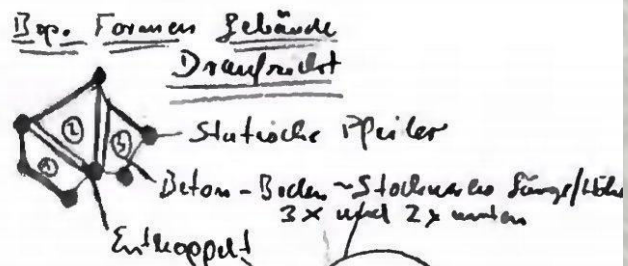 Bsp. Formen Gebäude
Draufsicht
② ③
①
Statische Pfeiler
Beton-Boden ~ Stockwerks Länge/Höhe
3x und 2x unten
Entkoppelt